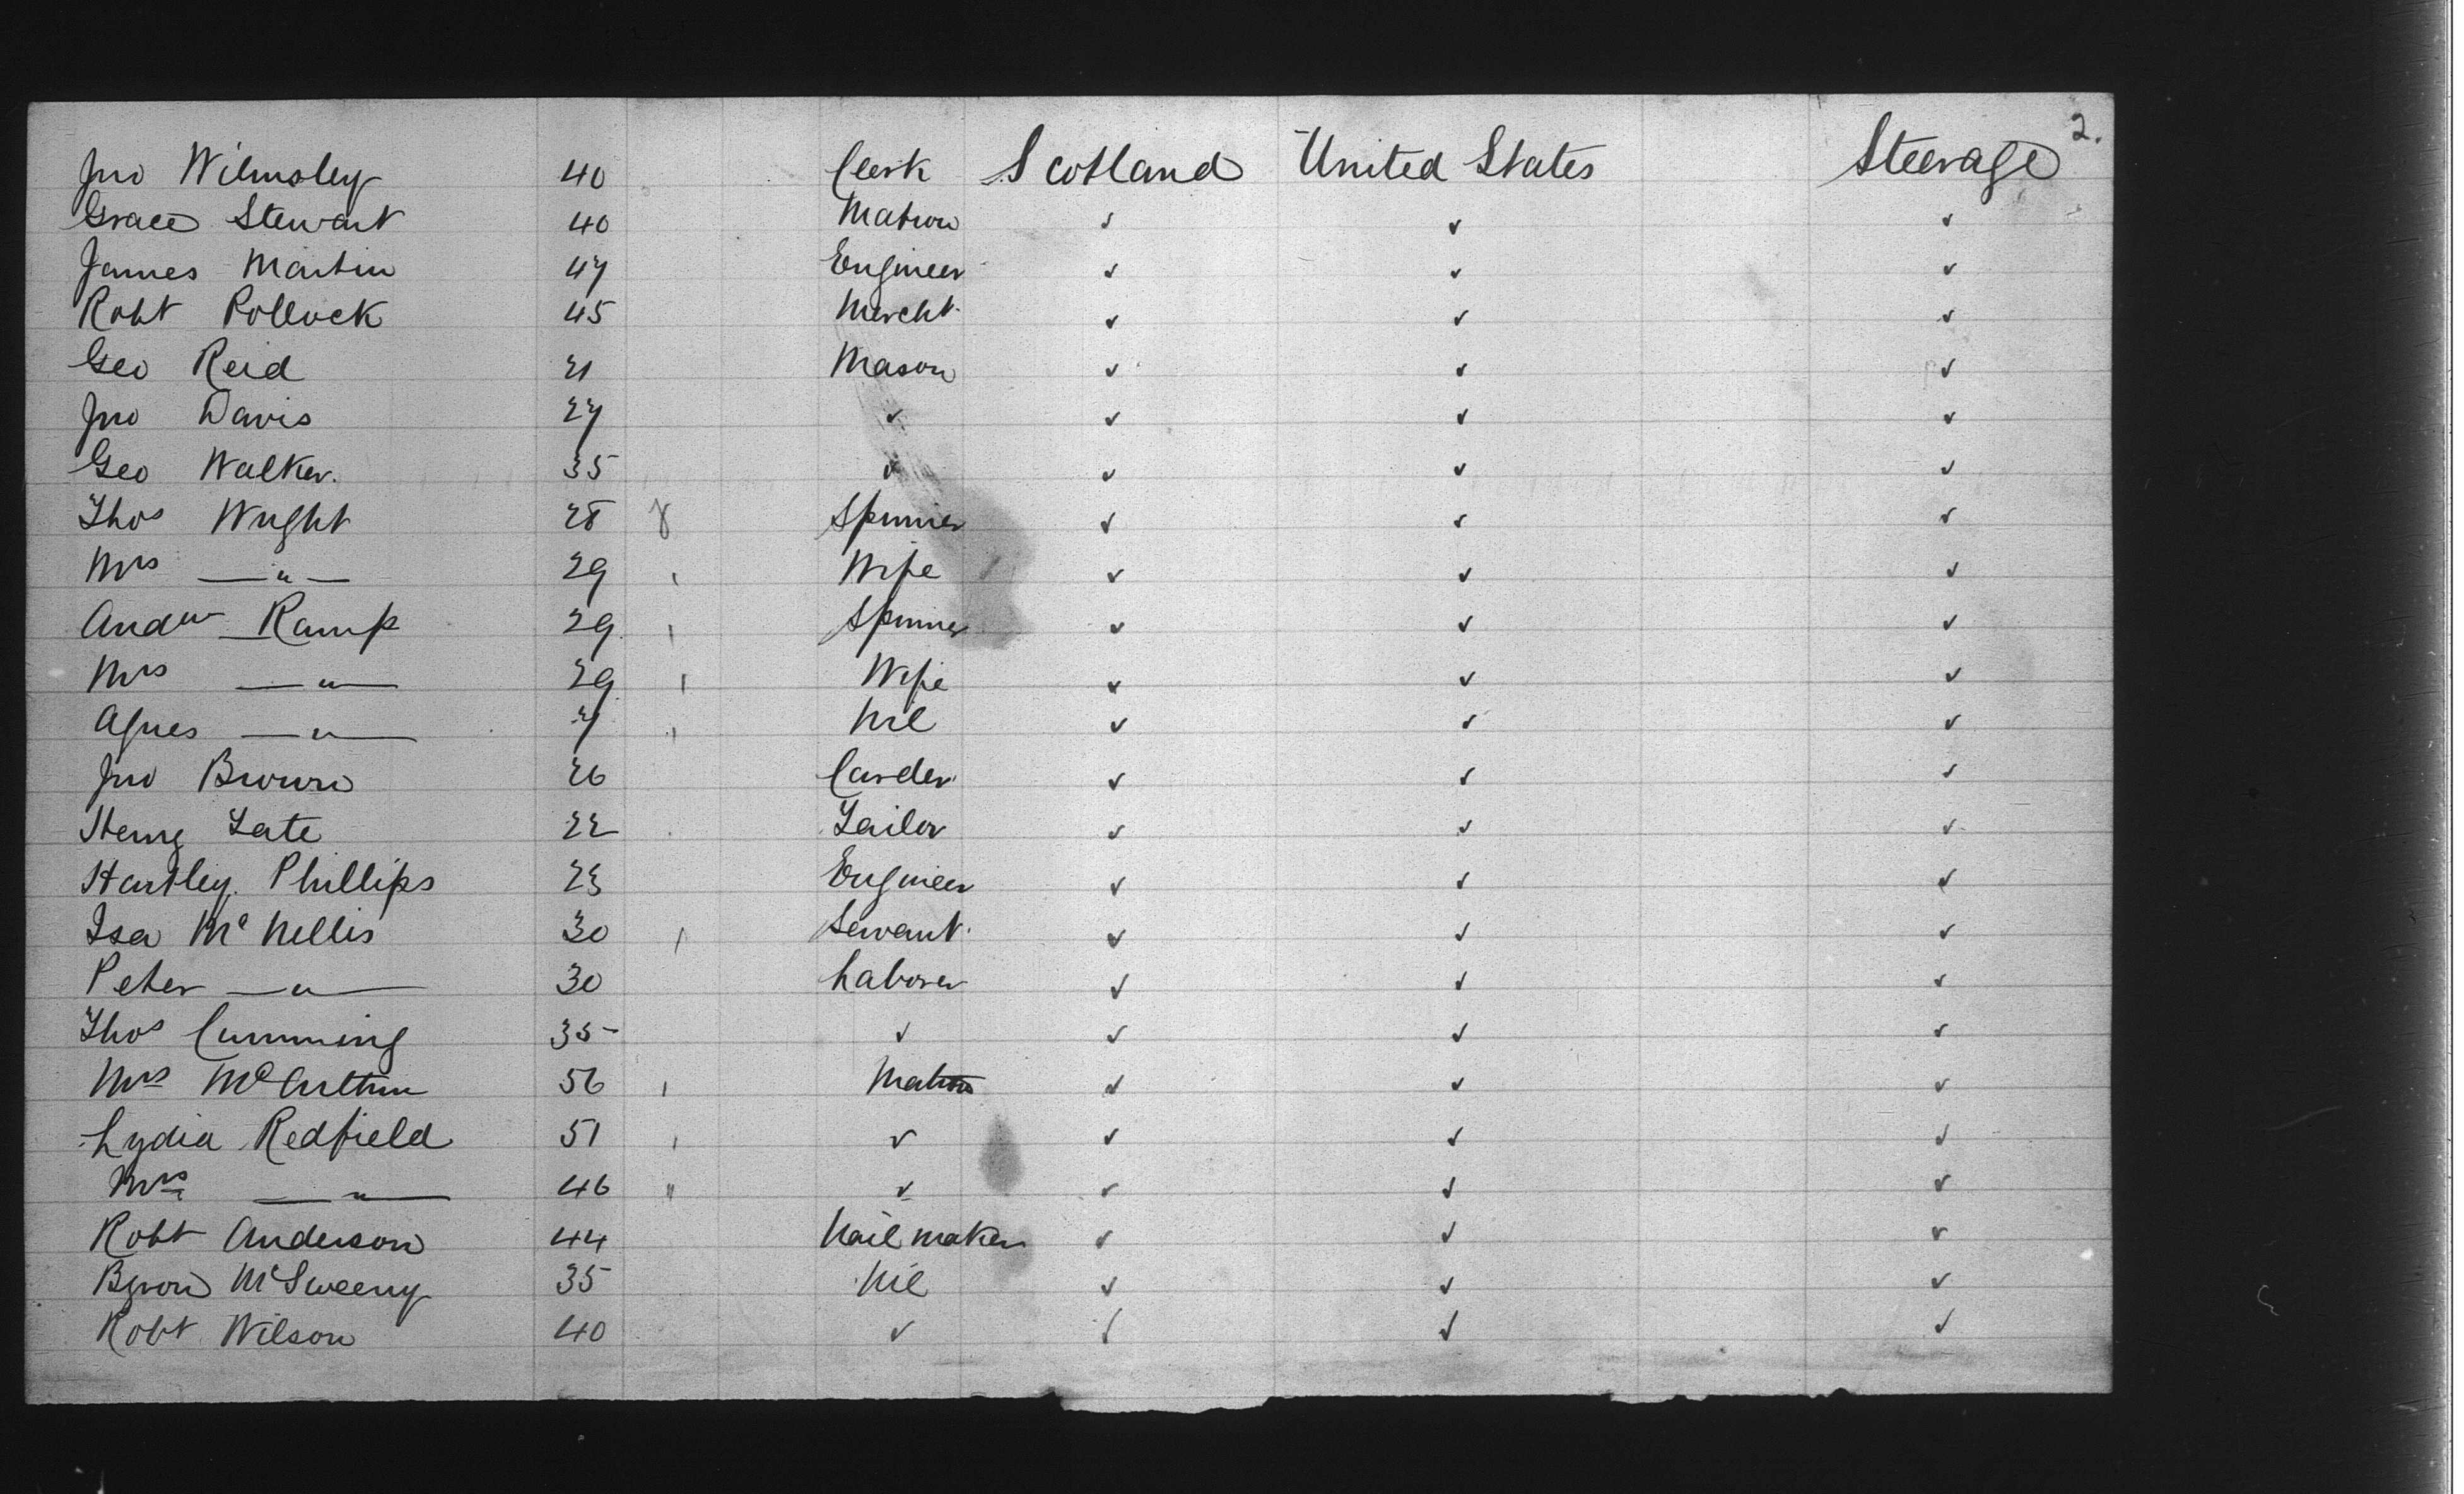 2.
Jno Wilmsley 40 Clerk Scotland United States Steerage
Grace Stewart 40 Matron ✓ ✓ ✓
James Martin 47 Engineer ✓ ✓ ✓
Robt Pollock 45 Mercht. ✓ ✓ ✓
Geo Reid 21 Mason ✓ ✓ ✓
Jno Davis 27 ✓ ✓ ✓ ✓
Geo Walker. 35 ✓ ✓ ✓ ✓
Thos Wright 28 Spinner ✓ ✓ ✓
Mrs —"— 29 Wife ✓ ✓ ✓
Andw Ramp 29 Spinner ✓ ✓ ✓
Mrs —"— 29 Wife ✓ ✓ ✓
Agnes —"— Nil ✓ ✓ ✓
Jno Brown 26 Carder ✓ ✓ ✓
Henry Tate 22 Tailor ✓ ✓ ✓
Hartley Phillips 23 Engineer ✓ ✓ ✓
Isa McNellis 30 Servant. ✓ ✓ ✓
Peter —"— 30 Laborer ✓ ✓ ✓
Thos Cumming 35 ✓ ✓ ✓ ✓
Mrs McArthur 56 Matron ✓ ✓ ✓
Lydia Redfield 51 ✓ ✓ ✓ ✓
Mrs —"— 46 " ✓ ✓ ✓ ✓
Robt Anderson 44 Nail maker ✓ ✓ ✓
Byron McSweeny 35 Nil ✓ ✓ ✓
Robt Wilson 40 ✓ ✓ ✓ ✓